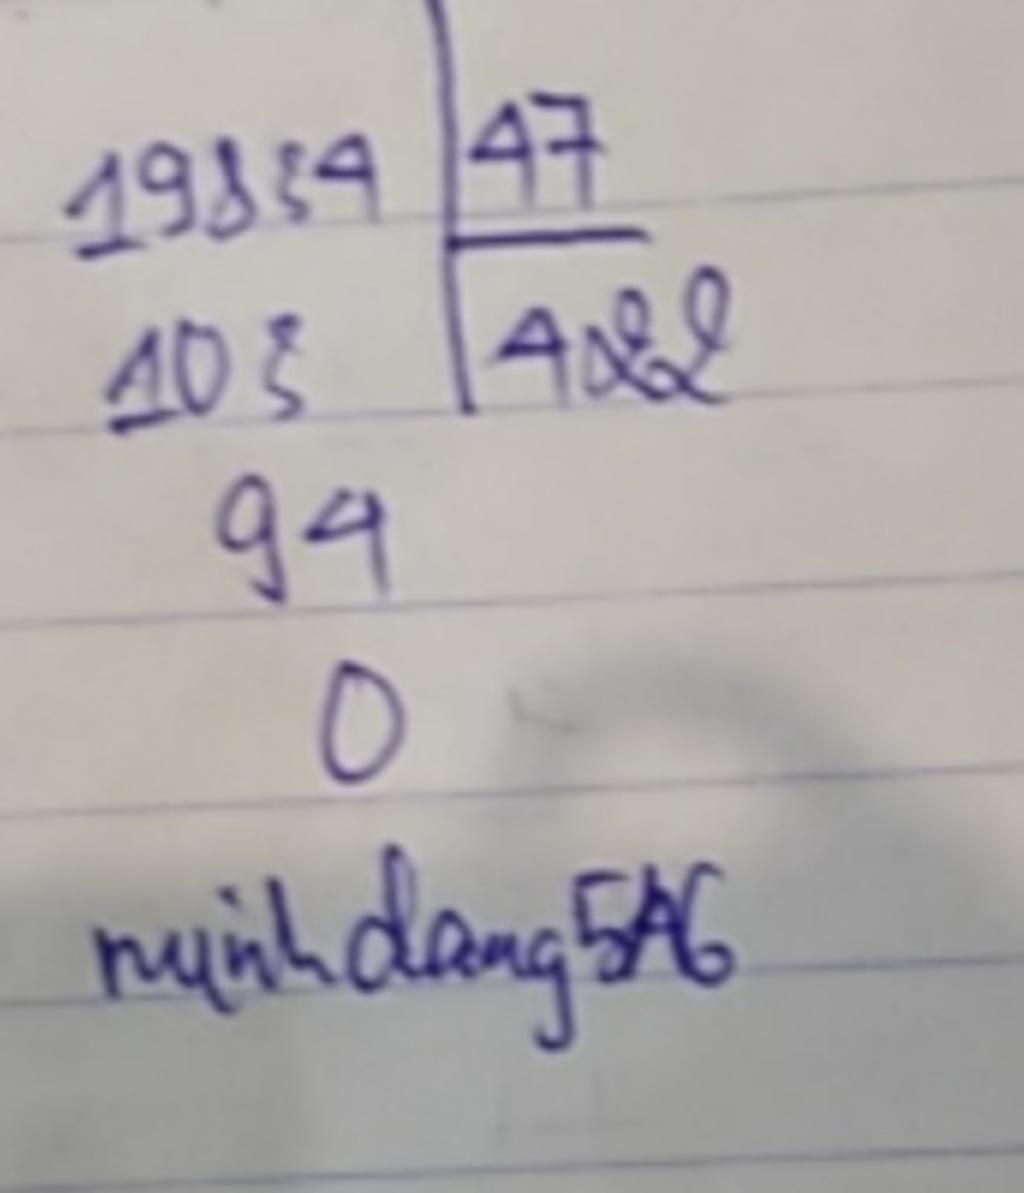 19834 47
103 422
94
0
minh dang 5A6